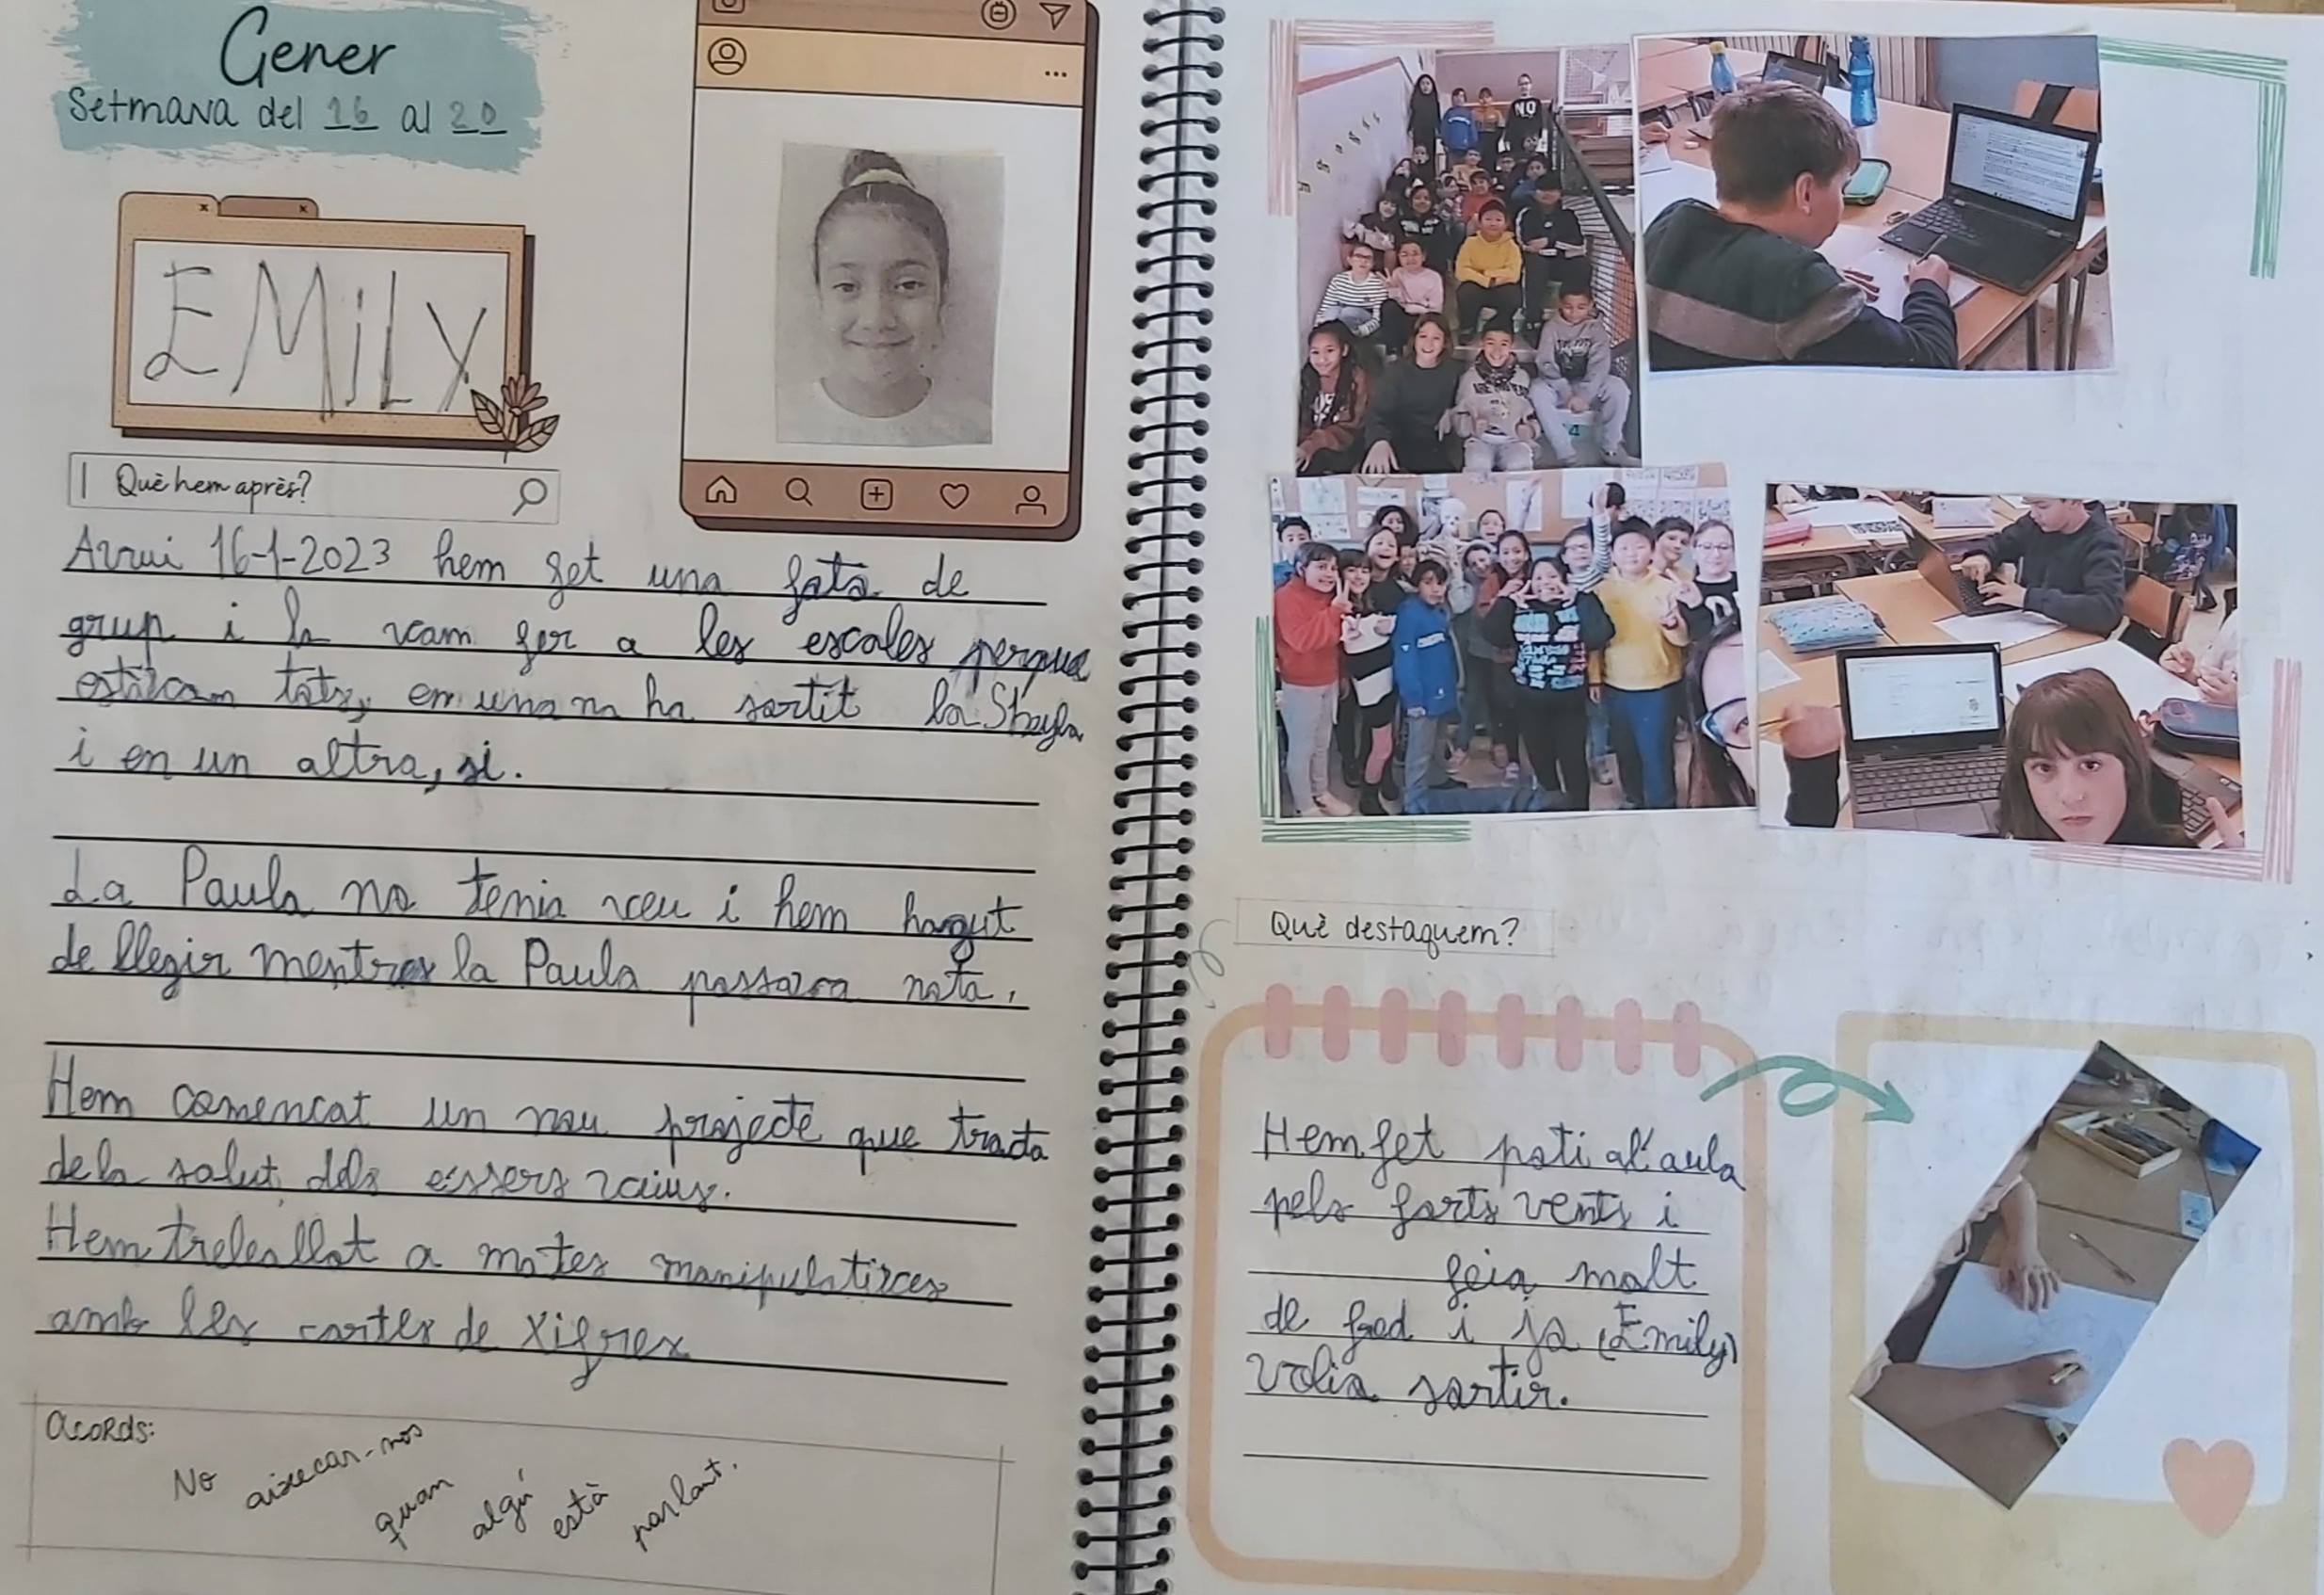 Gener
Setmana del 16 al 20
EMiLY
Què hem après?
Avui 16-1-2023 hem fet una foto de
grup i la vam fer a les escales perque
estavam tots, en una no ha sortit la Sheyla
i en un altra, si.
La Paula no tenia veu i hem hagut
de llegir mentres la Paula possava nota.
Hem comencat un nou projecte que tracta
de la salut dels éssers vius.
Hem treballat a mates manipulatives
amb les cartes de xifres
acords:
No aixecar-nos quan algú està parlant.
NO
4
Què destaquem?
Hem fet pati al'aula
pels forts vents i
feia molt
de fred i jo (Emily)
volia sortir.